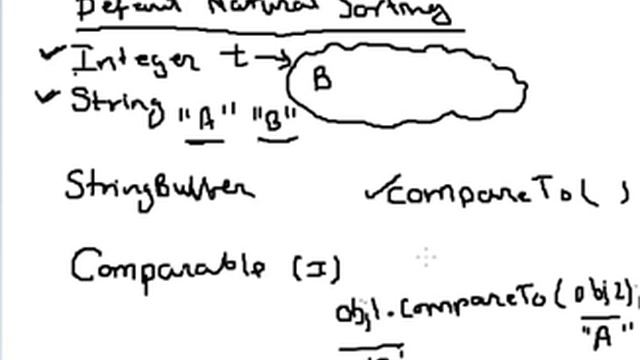 Default Natural Sorting
✓ Integer t → B
✓ String "A" "B"
StringBuffer ✓ CompareTo( )
Comparable (I)
obj1.CompareTo(obj2);
"A"